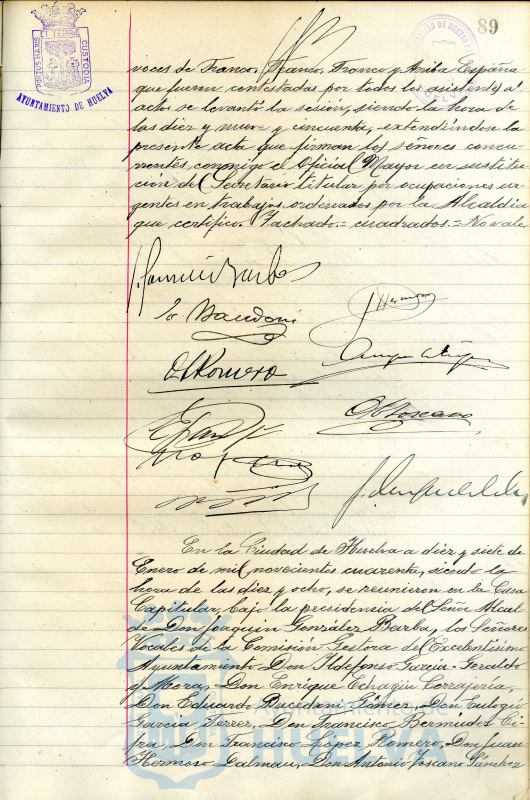 89
PORTUS MARIS ET TERRÆ CUSTODIA
AYUNTAMIENTO DE HUELVA
voces de Franco, Franco, Franco y Arriba España
que fueron contestadas por todos los asistentes al
acto se levantó la sesión, siendo la hora de
las diez y nueve y cincuenta, extendiéndose la
presente acta que firman los señores concu-
rrentes conmigo el Oficial Mayor en sustitu-
ción del Secretario titular por ocupaciones ur-
gentes en trabajos ordenados por la Alcaldia
que certifico. Tachado = cuadrados = No vale
Romero
Toscano
En la Ciudad de Huelva a diez y siete de
Enero de mil novecientos cuarenta, siendo la
hora de las diez y ocho, se reunieron en la Casa
Capitular, bajo la presidencia del Señor Alcal-
de Don Joaquin González Barba, los Señores
Vocales de la Comisión Gestora del Excelentísimo
Ayuntamiento Don Ildefonso Garcia-Geraldo
y Mora, Don Enrique Echagüe Corrajeria,
Don Eduardo Gómez, Don Eulogio
Garcia Ferrer, Don Francisco Bermúdez Ci-
fra, Don Francisco López Romero, Don Juan
Hermoso Dalmau, Don Antonio Toscano Sánchez
HUELVA